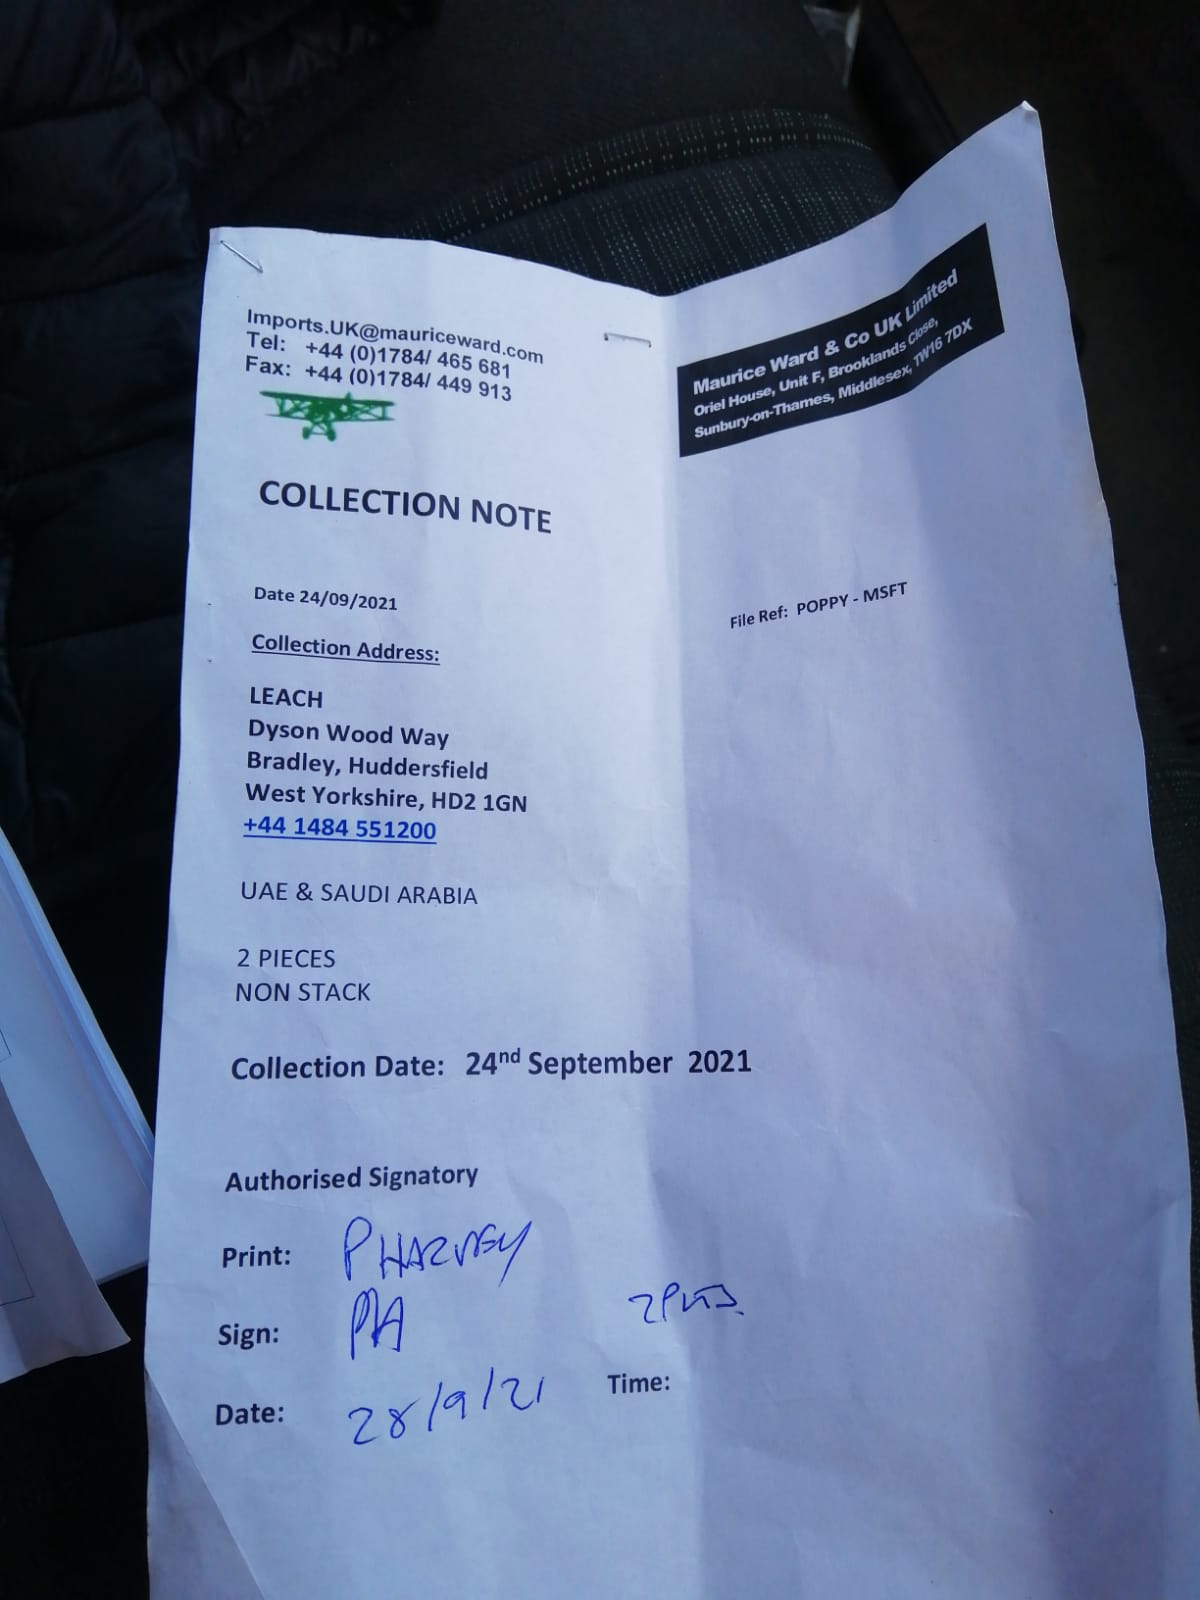 Imports.UK@mauriceward.com
Tel: +44 (0)1784/ 465 681
Fax: +44 (0)1784/ 449 913
Maurice Ward & Co UK Limited
Oriel House, Unit F, Brooklands Close,
Sunbury-on-Thames, Middlesex, TW16 7DX
COLLECTION NOTE
Date 24/09/2021
File Ref: POPPY - MSFT
Collection Address:
LEACH
Dyson Wood Way
Bradley, Huddersfield
West Yorkshire, HD2 1GN
+44 1484 551200
UAE & SAUDI ARABIA
2 PIECES
NON STACK
Collection Date: 24nd September 2021
Authorised Signatory
Print: P HARVEY
Sign: PH
2PLTS.
Date: 28/9/21 Time: